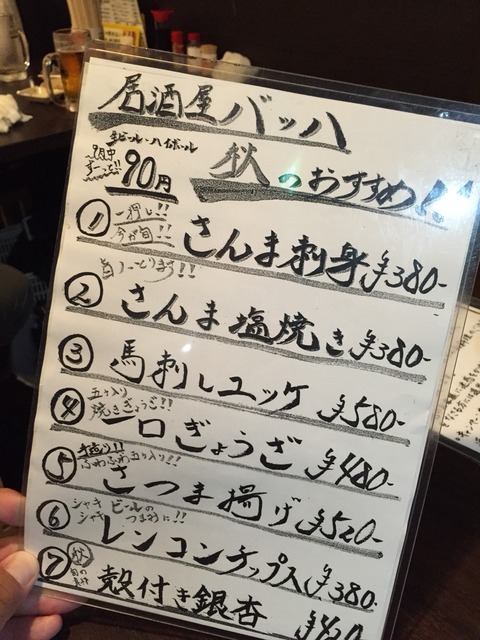 居酒屋バッハ
生ビール・ハイボール
9月中
ずーっと!!
90円
秋のおすすめ!!
① 一押し!!
今が旬!!
さんま刺身 ¥380-
②
さんま塩焼き ¥380-
③ 馬刺しユッケ ¥580-
④ 五ヶ入り
焼きぎょうざ!!
一口ぎょうざ ¥480-
⑤ 手造り!!
ふわふわ五ヶ入り!!
さつま揚げ ¥520-
⑥ シャキシャキ
ビールのつまみに!!
レンコンチップス ¥380-
⑦ 秋
旬の
殻付き銀杏